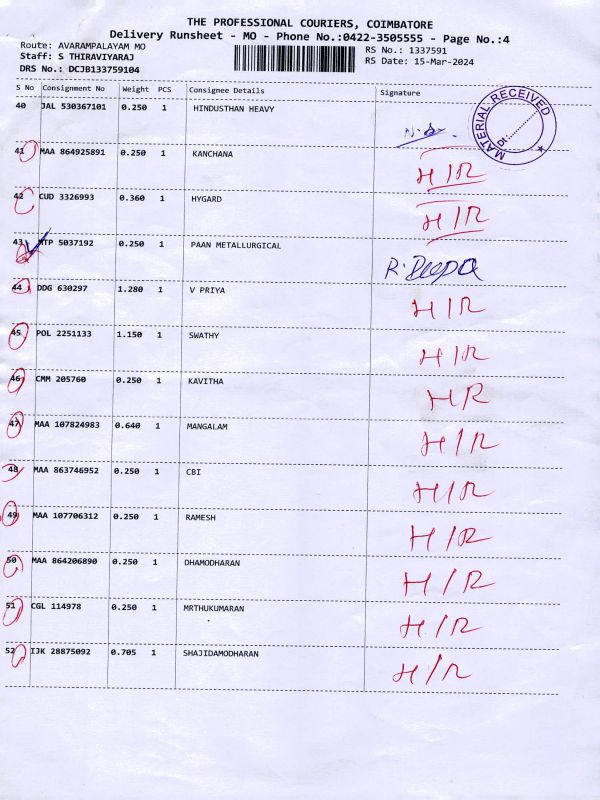 THE PROFESSIONAL COURIERS, COIMBATORE
Delivery Runsheet - MO - Phone No.:0422-3505555 - Page No.:4
Route: AVARAMPALAYAM MO RS No.: 1337591
Staff: S THIRAVIYARAJ RS Date: 15-Mar-2024
DRS No.: DCJB133759104
S No Consignment No Weight PCS Consignee Details Signature
40 JAL 530367101 0.250 1 HINDUSTHAN HEAVY
MATERIAL RECEIVED
Dt:
41 MAA 864925891 0.250 1 KANCHANA H/R
42 CUD 3326993 0.360 1 HYGARD H/R
43 MTP 5037192 0.250 1 PAAN METALLURGICAL R. Deepa
44 DDG 630297 1.280 1 V PRIYA H/R
45 POL 2251133 1.150 1 SWATHY H/R
46 CMM 205760 0.250 1 KAVITHA H/R
47 MAA 107824983 0.640 1 MANGALAM H/R
48 MAA 863746952 0.250 1 CBI H/R
49 MAA 107706312 0.250 1 RAMESH H/R
50 MAA 864206890 0.250 1 DHAMODHARAN H/R
51 CGL 114978 0.250 1 MRTHUKUMARAN H/R
52 IJK 28875092 0.705 1 SHAJIDAMODHARAN H/R